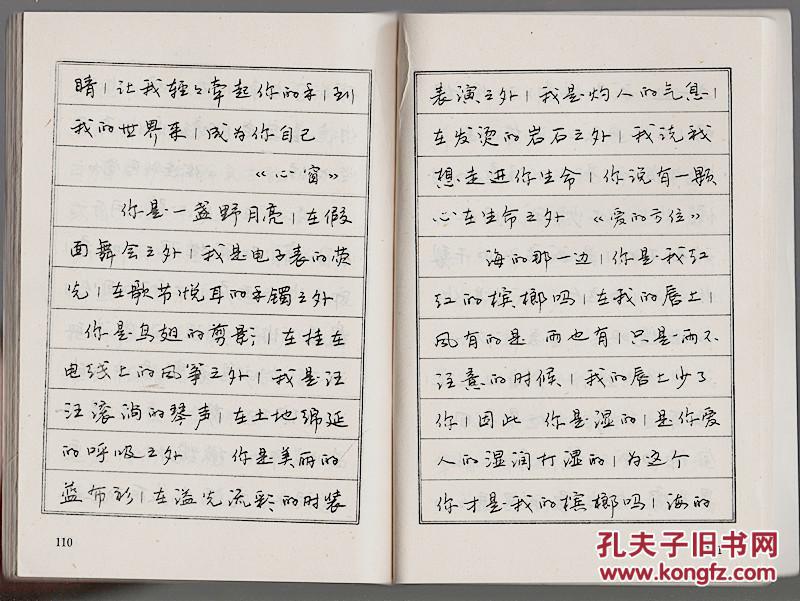 睛|让我轻々牵起你的手|到
我的世界来|成为你自己
《心窗》
你是一盏野月亮|在假
面舞会之外|我是电子表的荧
光|在歌节悦耳的手镯之外
你是鸟翅的剪影|在挂在
电线上的风筝之外|我是汪
汪滚淌的琴声|在土地绵延
的呼吸之外 你是美丽的
蓝布衫|在溢光流彩的时装
110
表演之外|我是灼人的气息|
在发烫的岩石之外|我说我
想走进你生命|你说有一颗
心在生命之外 《爱的方位》
海的那一边|你是我红
红的槟榔吗|在我的唇上|
风有的是 雨也有|只是雨不
注意的时候|我的唇上少了
你|因此 你是湿的|是你爱
人的湿润打湿的|为这个
你才是我的槟榔吗|海的
孔夫子旧书网
www.kongfz.com